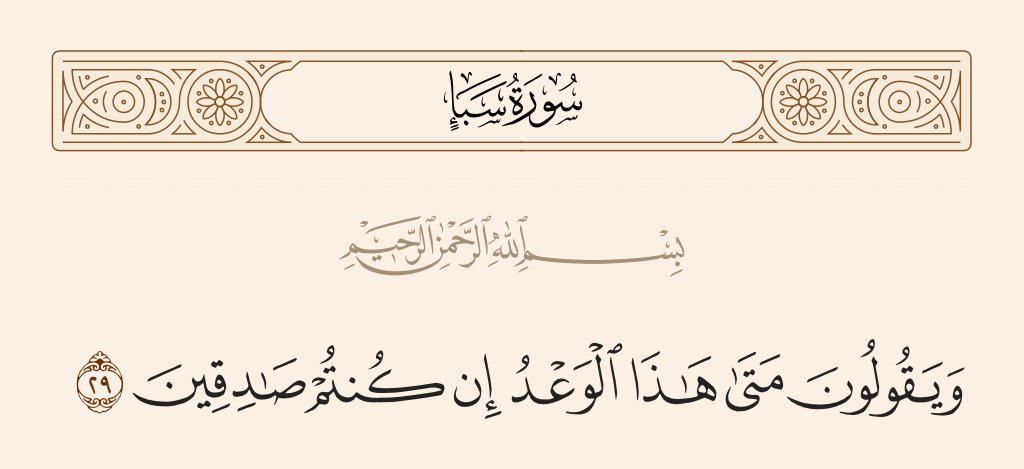 سُورَةُ سَبَإٍ
بِسْمِ ٱللَّهِ ٱلرَّحْمَٰنِ ٱلرَّحِيمِ
وَيَقُولُونَ مَتَىٰ هَٰذَا ٱلْوَعْدُ إِن كُنتُمْ صَٰدِقِينَ ٢٩